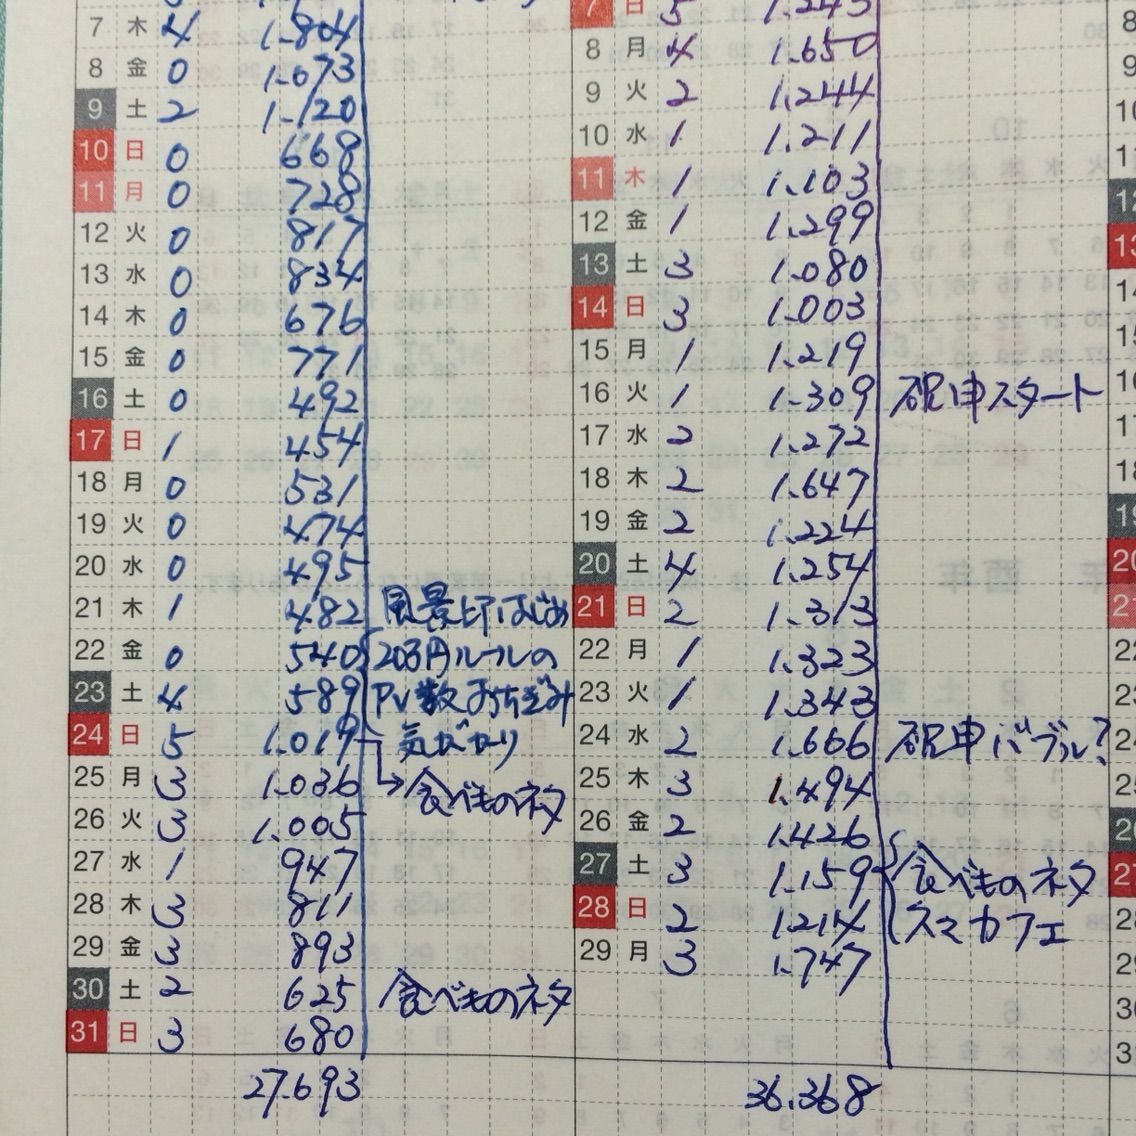 7 木 4 1.804
8 金 0 1.073
9 土 2 1.120
10 日 0 668
11 月 0 728
12 火 0 817
13 水 0 834
14 木 0 676
15 金 0 771
16 土 0 492
17 日 1 454
18 月 0 531
19 火 0 474
20 水 0 495
21 木 1 482 風景印はじめ
22 金 0 540 20万円ルールの
23 土 4 589 PV数おちぎみ
24 日 5 1.019 気がかり
25 月 3 1.036 →食べものネタ
26 火 3 1.005
27 水 1 947
28 木 3 811
29 金 3 893
30 土 2 625 食べものネタ
31 日 3 680
27.693
7 日 5 1.243
8 月 4 1.650
9 火 2 1.244
10 水 1 1.211
11 木 1 1.103
12 金 1 1.299
13 土 3 1.080
14 日 3 1.003
15 月 1 1.219
16 火 1 1.309 確申スタート
17 水 2 1.272
18 木 2 1.647
19 金 2 1.224
20 土 4 1.254
21 日 2 1.313
22 月 1 1.323
23 火 1 1.343
24 水 2 1.666 確申バブル?
25 木 3 1.494
26 金 2 1.426
27 土 3 1.159 食べものネタ
28 日 2 1.214 スマカフェ
29 月 3 1.747
36.368